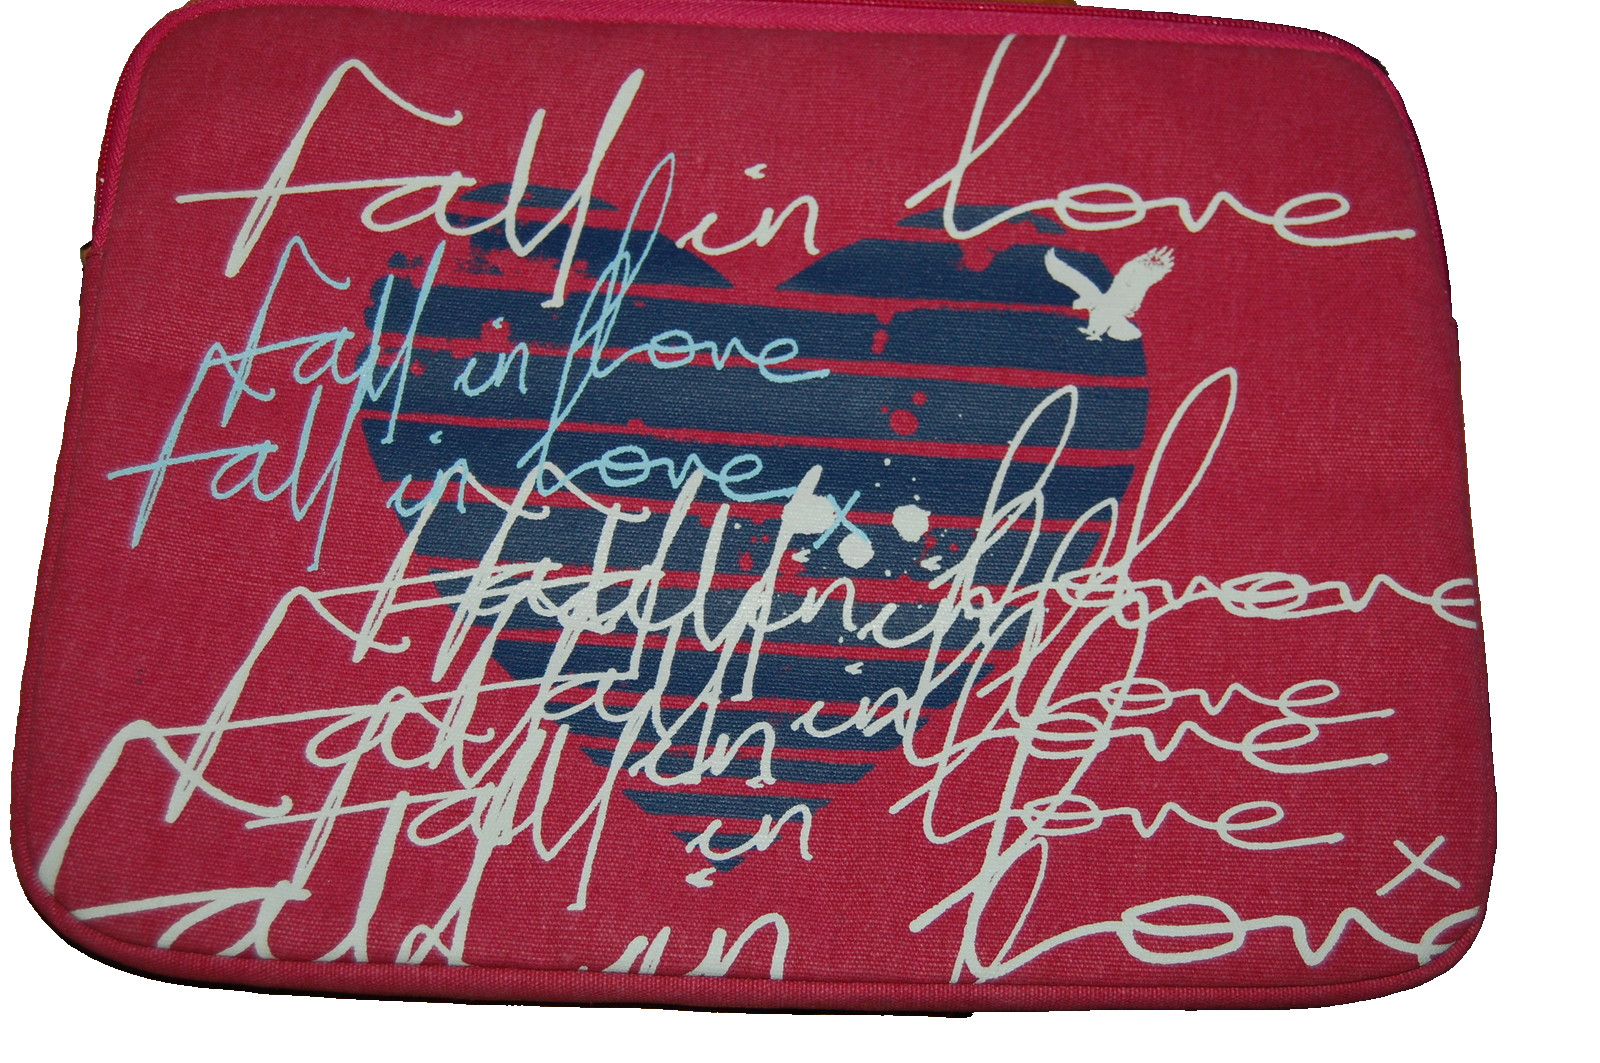 Fall in love
Fall in love
Fall in love x
Fall in love
Fall in love
Fall in love
Fall in love
Fall in love
x
Fall in love